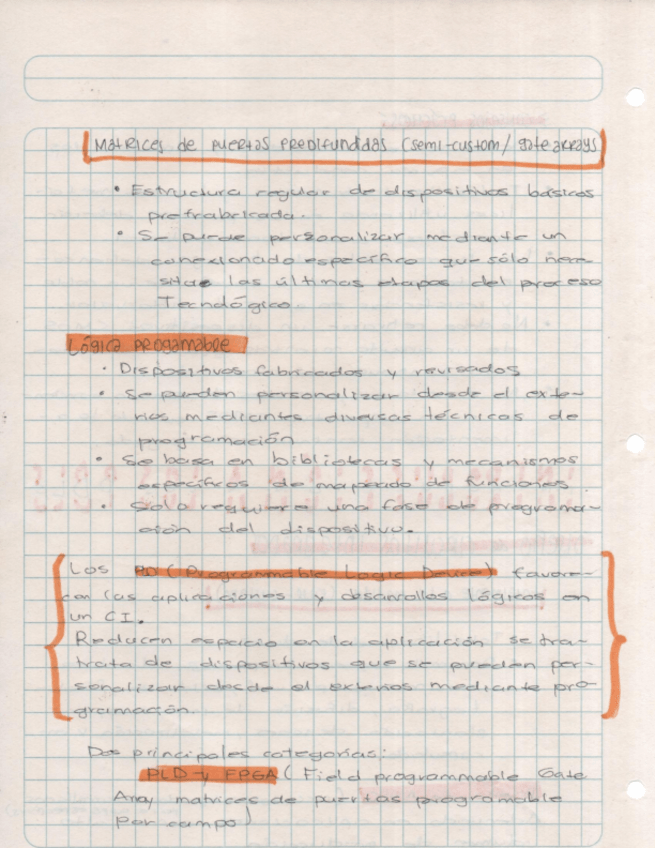 Matrices de puertas predifundidas (semi-custom/ gate arrays
• Estructura regular de dispositivos básicos
prefrabricada.
• Se puede personalizar mediante un
conexionado específico que sólo nece
sitae las últimas etapas del proceso
Tecnológico
Lógica progamable
• Dispositivos fabricados y revisados
• Se pueden personalizar desde el exte-
rios mediantes diversas técnicos de
programación
• Se basa en bibliotecas y mecanismos
específicos de mapeado de funciones
• Solo requiere una fase de programa-
ción del dispositivo.
Los PD (Programmable Logic Device) favore-
cen las aplicaciones y desarrollos lógicos en
un CI.
Reducen espacio en la aplicación se tra-
trata de dispositivos que se pueden per-
sonalizar desde el exterios mediante pro-
gramación.
Dos principales categorías:
PLD y FPGA (Field programmable Gate
Array matrices de puertas programable
por campo)